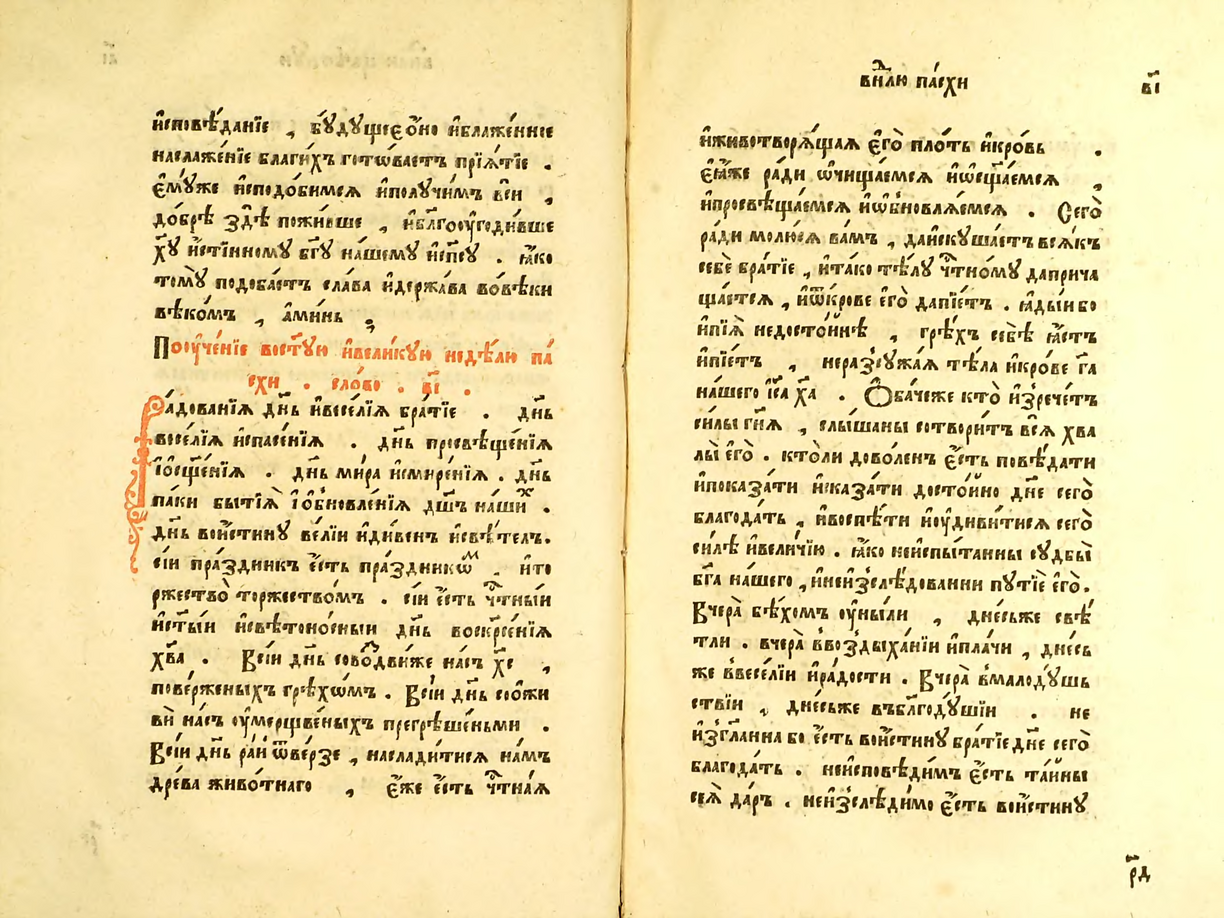 и҆сповѣ́данїе , бꙋ́дꙋщеє҆ ѻ҆́но и҆блаже́нное
наслаже́нїе благи́хъ готова́етъ прїѧ́тїе .
є҆мꙋ́же и҆сподо́бимсѧ и҆полꙋ́чимъ вси́ ,
до́брѣ здѣ̀ пожи́вше , и҆бл҃гоꙋгоди́вше
хꙋ҃ и҆́стинномꙋ бг҃ꙋ на́шемꙋ и҆сп҃сꙋ . ꙗ҆́ко
томꙋ̀ подоба́етъ сла́ва и҆держа́ва вовѣ́ки
вѣко́мъ , а҆ми́нь ,
Поꙋче́нїе вост҃ꙋю и҆вели́кꙋю недѣ́лю па́
схи . сло́во . в҃і .
Ра́дованїѧ дн҃ь и҆весе́лїѧ бра́тїе . дн҃ь
весе́лїѧ и҆спасе́нїѧ . дн҃ь просвѣще́нїѧ
і҆ѻ҆сщ҃е́нїѧ . дн҃ь ми́ра и҆смире́нїѧ . дн҃ь
па́ки бытїѧ̀ і҆ѻ҆бновле́нїѧ дш҃ъ на́шиⷯ .
дн҃ь вои́стинꙋ ве́лїи и҆ди́венъ и҆свѣ́телъ.
сі́и пра́здникъ є҆́сть пра́здникѡⷨ . и҆то
ржество̀ торжество́мъ . сі́и є҆́сть чⷭ҇тны́и
и҆ст҃ы́и и҆свѣтоно́сныи дн҃ь воскрⷭ҇е́нїѧ
хв҃а . Всі́и дн҃ь совоⷥдви́же на́съ хс҃е ,
пове́рженыхъ грѣхѡ́мъ . Всі́и дн҃ь со ѻ҆жи
вѝ на́съ ᲂу҆мерщвле́ныхъ прегрѣше́ньми .
Всі́и дн҃ь ра́и ѿве́рзе , наслади́тисѧ на́мъ
дре́ва живо́тнаго , є҆́же є҆́сть чⷭ҇тна́ѧ
вн҃лю па́схи в҃і
и҆животворѧ́щаѧ є҆гѡ̀ пло́ть и҆кро́вь .
є҆ѧ́же ра́ди ѡ҆чища́емсѧ и҆ѡ҆сщ҃а́емсѧ ,
и҆просвѣща́емсѧ и҆ѡ҆бновлѧ́емсѧ . Сегѡ̀
ра́ди молю́сѧ ва́мъ , даискꙋша́етъ всѧ́къ
себѐ бра́тїе , и҆та́ко тѣ́лꙋ чⷭ҇тно́мꙋ даприча
ща́етсѧ , и҆ѿкро́ве є҆го̀ дапїе́тъ . ꙗ҆ды́и бо
и҆пїѧ̀ недосто́йнѣ , грѣ́хъ себѣ̀ ꙗ҆́стъ
и҆пїе́тъ , неразсꙋжа́ѧ тѣ́ла и҆кро́ве гⷭ҇а
на́шего і҆с҃а х҃а . Ѻ҆ба́чеже кто̀ и҆зрече́тъ
си́лы гн҃ѧ , слы́шаны сотвори́тъ всѧ̀ хва
лы̀ є҆го̀ . кто́ли дово́ленъ є҆́сть повѣ́дати
и҆показа́ти и҆сказа́ти досто́йно дн҃е сего̀
благода́ть , и҆воспѣ́ти и҆ᲂу҆диви́тисѧ сего̀
си́лѣ и҆вели́чїю . ꙗ҆́ко неиспы́танны сꙋдьбы̀
бг҃а на́шего , и҆неизслѣ́дованни пꙋтїѐ є҆го̀.
Вчера̀ бѣ́хомъ ᲂу҆ны́ли , дне́сьже свѣ́
тли . вчера̀ ввоздыха́нїи и҆пла́чи , дне́сь
же ввесе́лїи и҆ра́дости . Вчера̀ вмалодꙋ́шь
ствїи , дне́сьже въбл҃годꙋ́шїи . не
и҆згл҃анна бо є҆́сть вои́стинꙋ бра́тїе дн҃е сего̀
благода́ть . неисповѣ́димъ є҆́сть та́йны
сеѧ̀ да́ръ . неизслѣ́димо є҆́сть вои́стинꙋ
р҃д